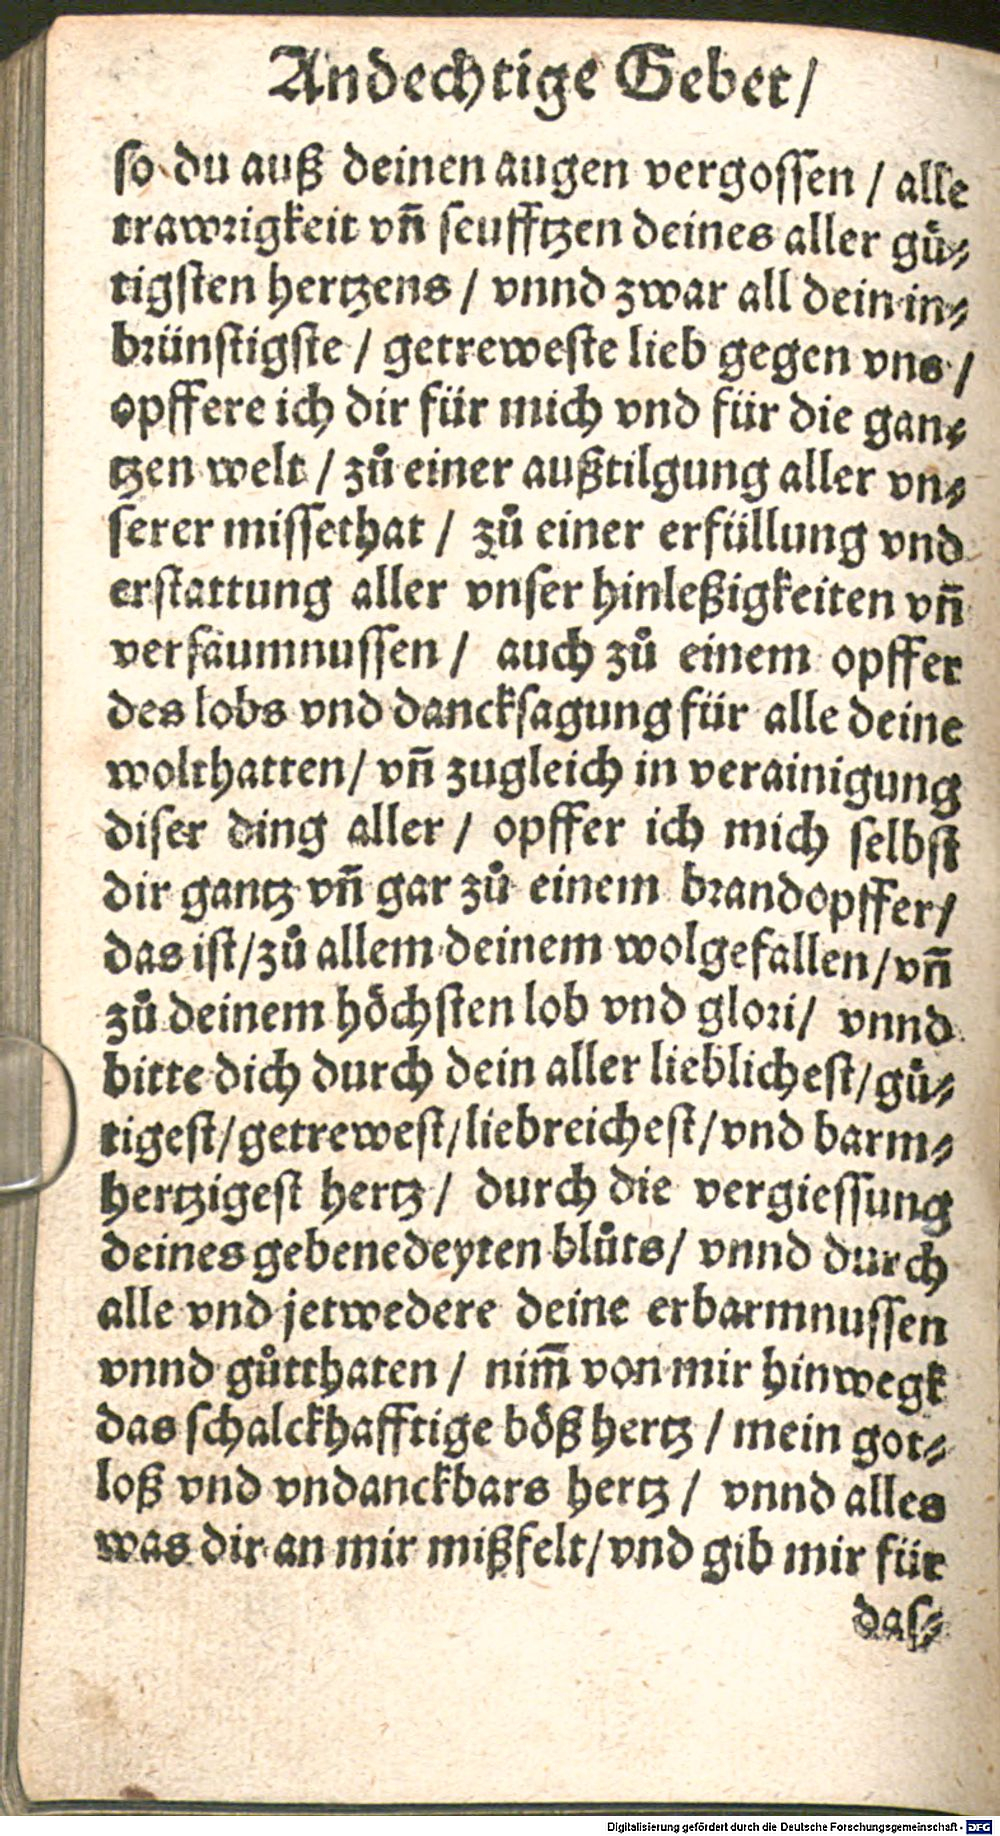 Andechtige Gebet/
so du auß deinen augen vergossen / alle
trawrigkeit vñ seufftzen deines aller guͤ⸗
tigsten hertzens / vnnd zwar all dein in⸗
brünstigste / getreweste lieb gegen vns /
opffere ich dir für mich vnd für die gan⸗
tzen welt / zuͦ einer außtilgung aller vn⸗
serer missethat / zuͦ einer erfüllung vnd
erstattung aller vnser hinleßigkeiten vñ
versäumnussen / auch zuͦ einem opffer
des lobs vnd dancksagung für alle deine
wolthatten/ vñ zugleich in verainigung
diser ding aller / opffer ich mich selbst
dir gantz vñ gar zuͦ einem brandopffer/
das ist/zuͦ allem deinem wolgefallen/vñ
zuͦ deinem hoͤchsten lob vnd glori/ vnnd
bitte dich durch dein aller lieblichest/guͤ⸗
tigest/getrewest/liebreichest/vnd barm⸗
hertzigest hertz / durch die vergiessung
deines gebenedeyten bluͦts/ vnnd durch
alle vnd jetwedere deine erbarmnussen
vnnd guͦtthaten / nim̃ von mir hinwegk
das schalckhafftige böß hertz / mein got⸗
loß vnd vndanckbars hertz / vnnd alles
was dir an mir mißfelt/vnd gib mir für
das⸗
Digitalisierung gefördert durch die Deutsche Forschungsgemeinschaft - DFG